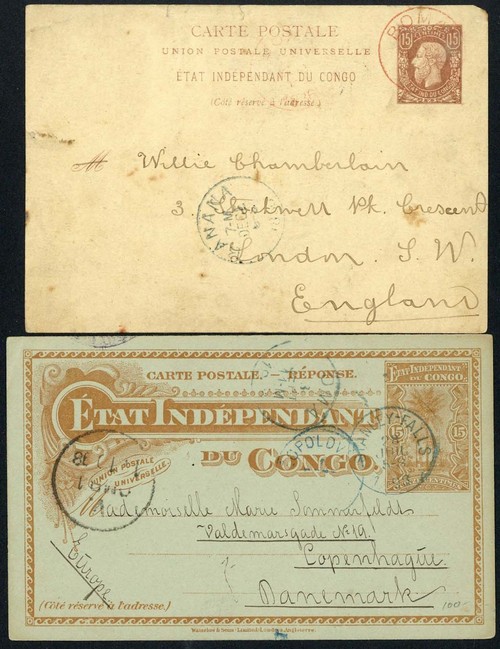 CARTE POSTALE
UNION POSTALE UNIVERSELLE
ÉTAT INDÉPENDANT DU CONGO
(Côté réservé à l'adresse.)
BOM
15 CENTIMES 15
ÉTAT IND. DU CONGO
M Willie Chamberlain
3, Stockwell Pk. Crescent
London. S. W.
England
BANANA
7-M
DEC
CARTE POSTALE. — RÉPONSE.
ÉTAT INDÉPENDANT
DU CONGO.
UNION POSTALE
UNIVERSELLE.
ÉTAT INDÉPENDANT
DU CONGO.
15 15
CENTIMES
EY-FALLS
POLDV
Mademoiselle Marie Sommerfeldt
Valdemarsgade No 19!
Copenhague
Danemark
Europe
(Côté réservé à l'adresse.)
100.-
Waterlow & Sons Limited, Londres, Angleterre.